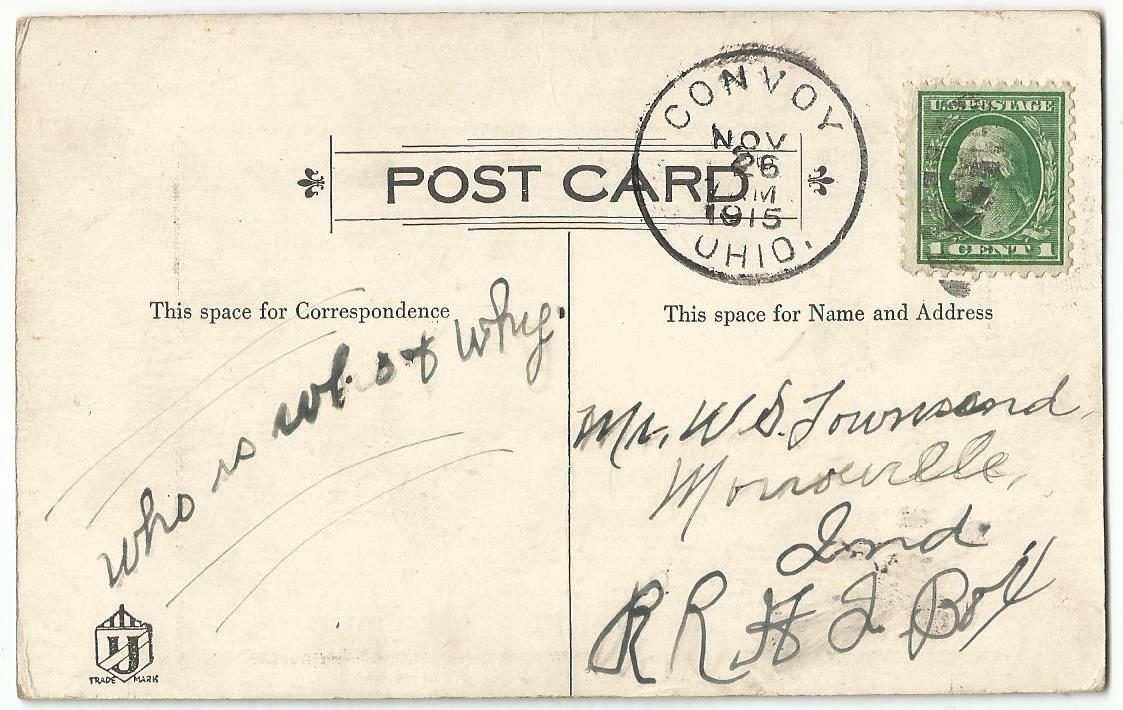 CONVOY
NOV
26
M
1915
OHIO.
U.S. POSTAGE
1 CENT 1
POST CARD
This space for Correspondence
who is who & why.
This space for Name and Address
Mr. W S. Townsend,
Monroeville,
Ind.
R R # 2 Box
UJ
TRADE MARK